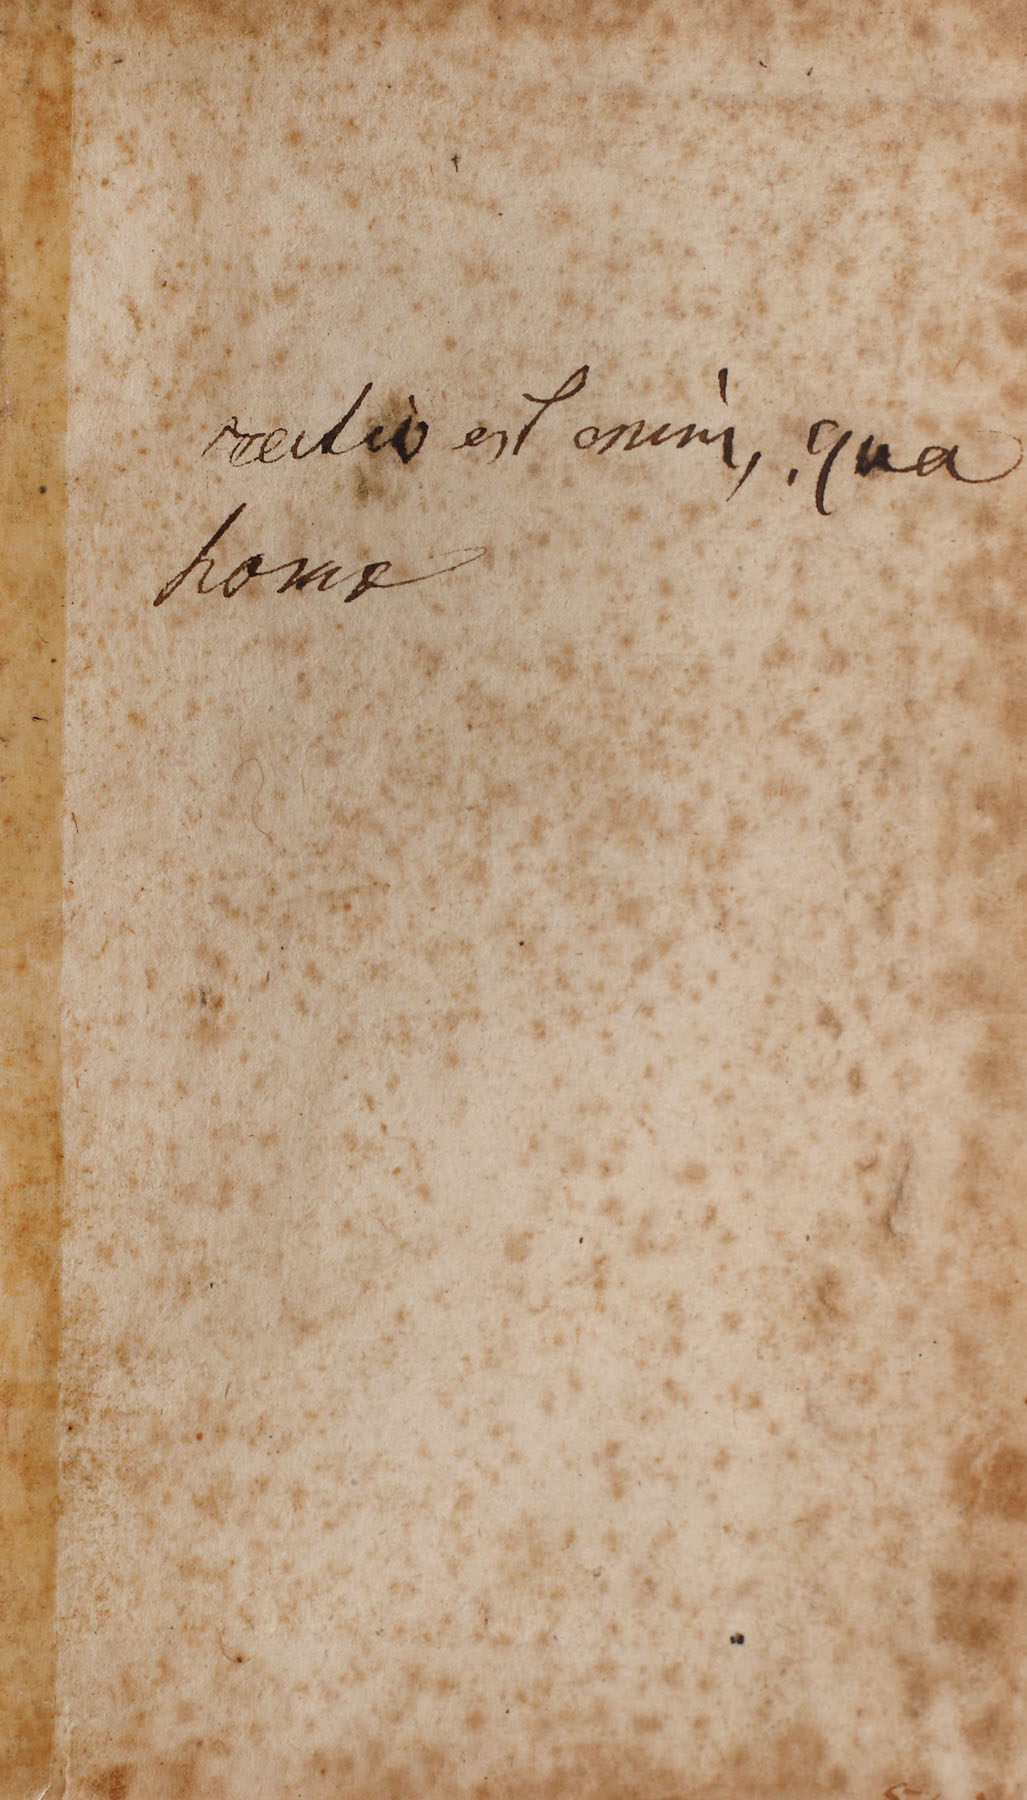 ratio est enim, qua
homo